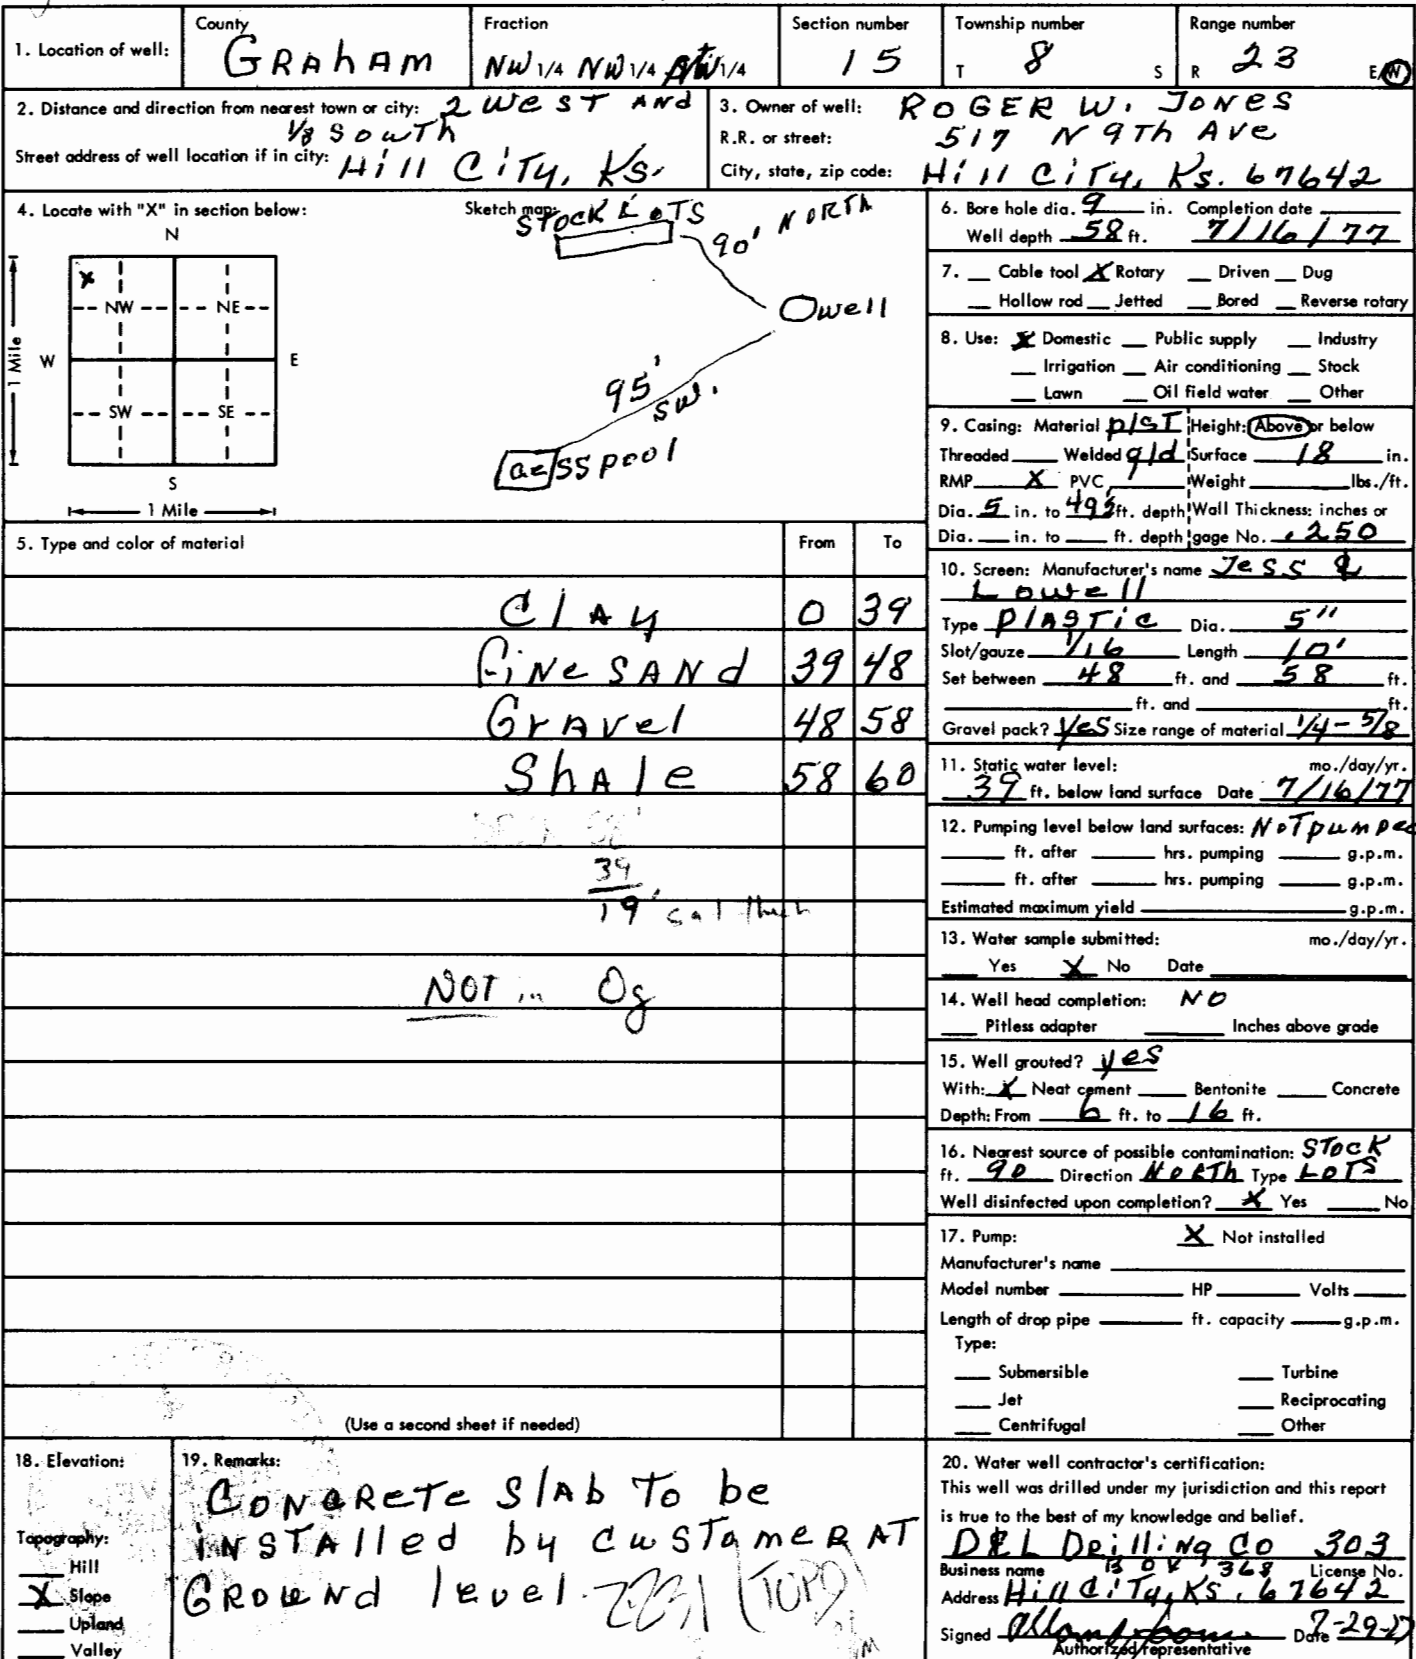 1. Location of well:
County
GRAhAM
Fraction
NW 1/4 NW 1/4 NW 1/4
Section number
15
Township number
T 8 S
Range number
R 23 E/W
2. Distance and direction from nearest town or city: 2 WeST AND
1/8 SOWTh
Street address of well location if in city: Hill CiTy, KS.
3. Owner of well: ROGER W. JONES
R.R. or street: 517 N 9Th AVe
City, state, zip code: Hill CiTy, KS. 67642
4. Locate with "X" in section below:
N
x
NW NE
W E
SW SE
S
1 Mile
1 Mile
Sketch map:
STOCK LOTS
90' NORTh
Owell
95' SW.
cesspool
5. Type and color of material From To
ClAy 0 39
FiNe SANd 39 48
GrAvel 48 58
ShAle 58 60
58'
39
19' sat thick
NOT in Og
(Use a second sheet if needed)
6. Bore hole dia. 9 in. Completion date
Well depth 58 ft. 7/16/77
7. Cable tool X Rotary Driven Dug
Hollow rod Jetted Bored Reverse rotary
8. Use: X Domestic Public supply Industry
Irrigation Air conditioning Stock
Lawn Oil field water Other
9. Casing: Material plST Height: Above or below
Threaded Welded gld Surface 18 in.
RMP X PVC Weight lbs./ft.
Dia. 5 in. to ft. depth Wall Thickness: inches or
Dia. in. to ft. depth gage No. .250
10. Screen: Manufacturer's name JeSS &
Lowell
Type PlASTic Dia. 5"
Slot/gauze 1/16 Length 10'
Set between 48 ft. and 58 ft.
ft. and ft.
Gravel pack? yeS Size range of material 1/4 - 5/8
11. Static water level: mo./day/yr.
39 ft. below land surface Date 7/16/77
12. Pumping level below land surfaces: NOT pumped
ft. after hrs. pumping g.p.m.
ft. after hrs. pumping g.p.m.
Estimated maximum yield g.p.m.
13. Water sample submitted: mo./day/yr.
Yes X No Date
14. Well head completion: NO
Pitless adapter Inches above grade
15. Well grouted? yes
With: X Neat cement Bentonite Concrete
Depth: From 6 ft. to 16 ft.
16. Nearest source of possible contamination: STOCK
ft. 90 Direction NORTh Type LOTS
Well disinfected upon completion? X Yes No
17. Pump: X Not installed
Manufacturer's name
Model number HP Volts
Length of drop pipe ft. capacity g.p.m.
Type:
Submersible Turbine
Jet Reciprocating
Centrifugal Other
18. Elevation:
Topography:
Hill
X Slope
Upland
Valley
19. Remarks:
CONCReTe SlAb To be
iNSTAlled by CuSTomeR AT
GROUNd level.
2231 (TOPO)
20. Water well contractor's certification:
This well was drilled under my jurisdiction and this report
is true to the best of my knowledge and belief.
D&L DRilliNg CO 303
Business name License No.
BOX 368
Address Hill CiTy, KS. 67642
Signed Date 7-29-77
Authorized representative